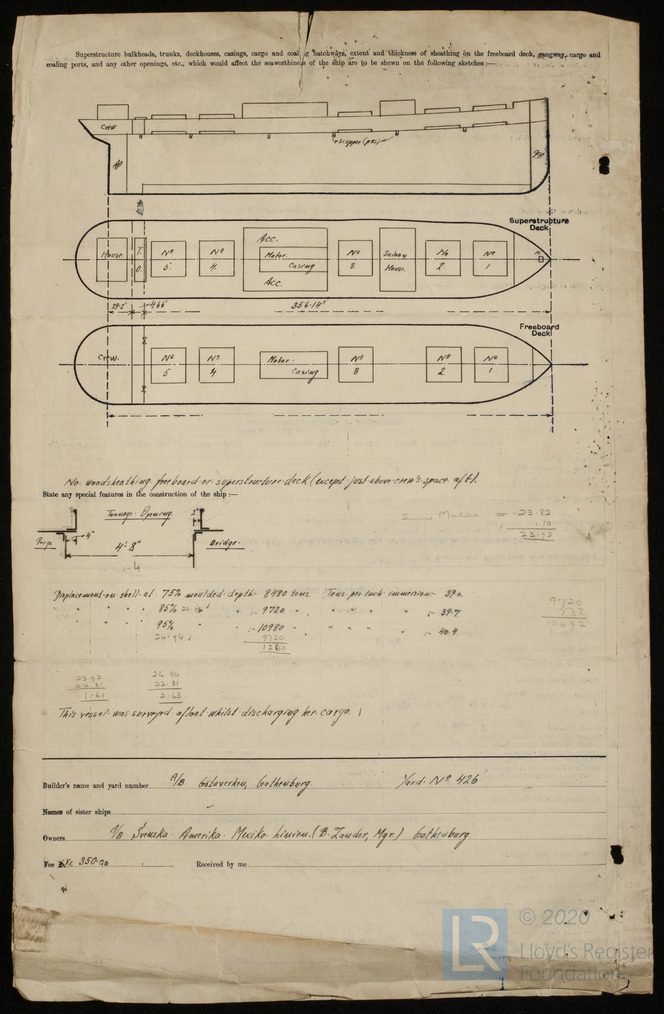 Superstructure bulkheads, trunks, deckhouses, casings, cargo and coaling hatchways, extent and thickness of sheathing on the freeboard deck, gangway, cargo and
coaling ports, and any other openings, etc., which would affect the seaworthiness of the ship are to be shewn on the following sketches:—
Crew
Scupper (P&S)
AP
FP
Superstructure
Deck
House
T.
O.
Nº
5.
Nº
4.
Acc.
Motor
Casing
Acc.
Nº
3.
Saloon
House.
No
2.
Nº
1
29.2'
4.66'
356.14'
Freeboard
Deck
Crew.
Nº
5
Nº
4
Motor.
Casing
Nº
3
Nº
2.
Nº
1
No woodsheathing freeboard or superstructure deck (except just above crew's space aft).
State any special features in the construction of the ship:—
Tonnage Opening.
2"
4"
Poop
4'-8"
Bridge.
4
= 23.82
.10
23.92
Displacement on shell at 75% moulded depth 8480 tons. Tons per inch immersion 39.0.
" " " 85% " " :- 9720 " " " " :- 39.7.
" " " 95% " " :- 10980 " " " " :- 40.9.
24.94
9720
1260
9720
772
10492
23.92
22.31
1.61
24.94
22.31
2.63
This vessel was surveyed afloat whilst discharging her cargo.
Builder's name and yard number A/B Götaverken, Gothenburg. Yard. Nº 426
Names of sister ships
Owners A/B Svenska Amerika Mexiko Linien. (B. Zander, Mgr.) Gothenburg.
Fee Kr. 350.00 Received by me
LR
© 2020
Lloyd's Register
Foundation